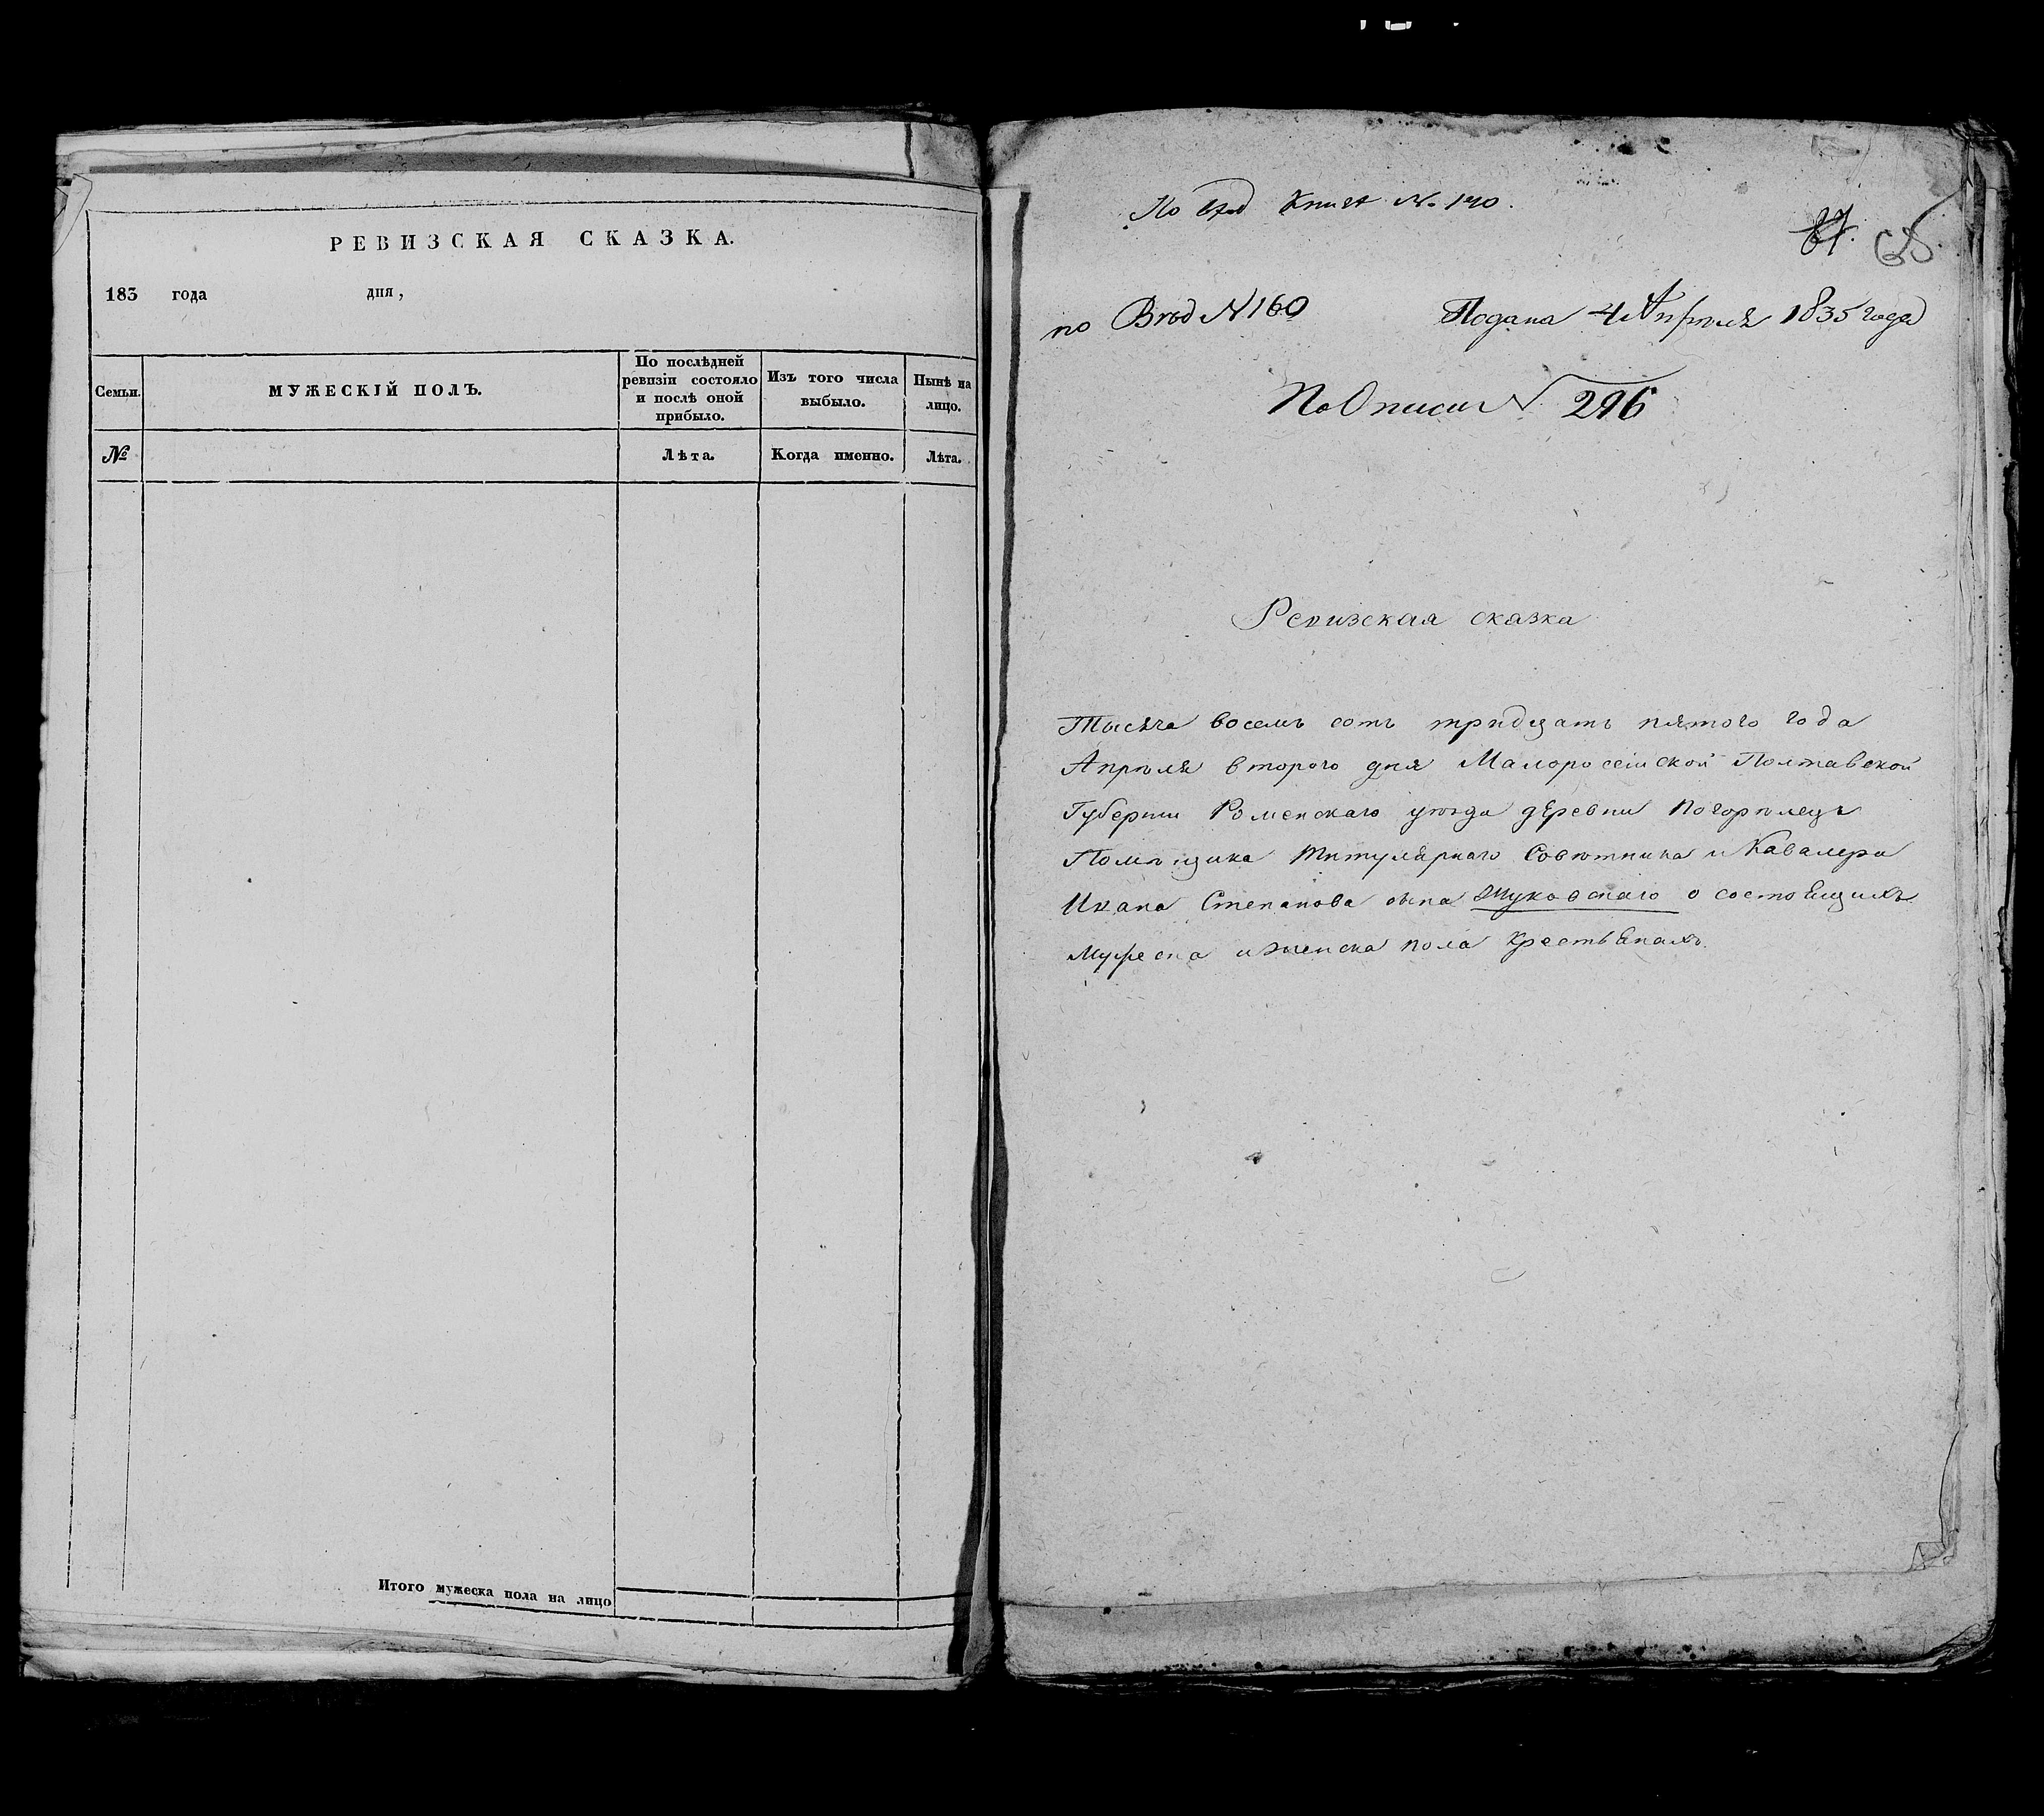 РЕВИЗСКАЯ СКАЗКА.
183 года дня,
Семьи.
МУЖЕСКІЙ ПОЛЪ.
По послѣдней
ревизіи состояло
и послѣ оной
прибыло.
Изъ того числа
выбыло.
Нынѣ на
лицо.
№
Лѣта.
Когда именно.
Лѣта.
Итого мужеска пола на лицо
По Книга №
по Вход N 160
Подана 4 Апрѣля 1835 года
По Описи N 296
Ревизская сказка
Тысяча восемъ сотъ тридцать пятого года
Апрѣля второго дня Малоросеійской Полтавской
Губерніи Роменскаго уѣзда деревни Погорѣлецъ
Помѣщика Титулярнаго Совѣтника и Кавалера
Ивана Степанова сына Жуковскаго о состоящихъ
Мужеска и женска пола крестьянахъ.